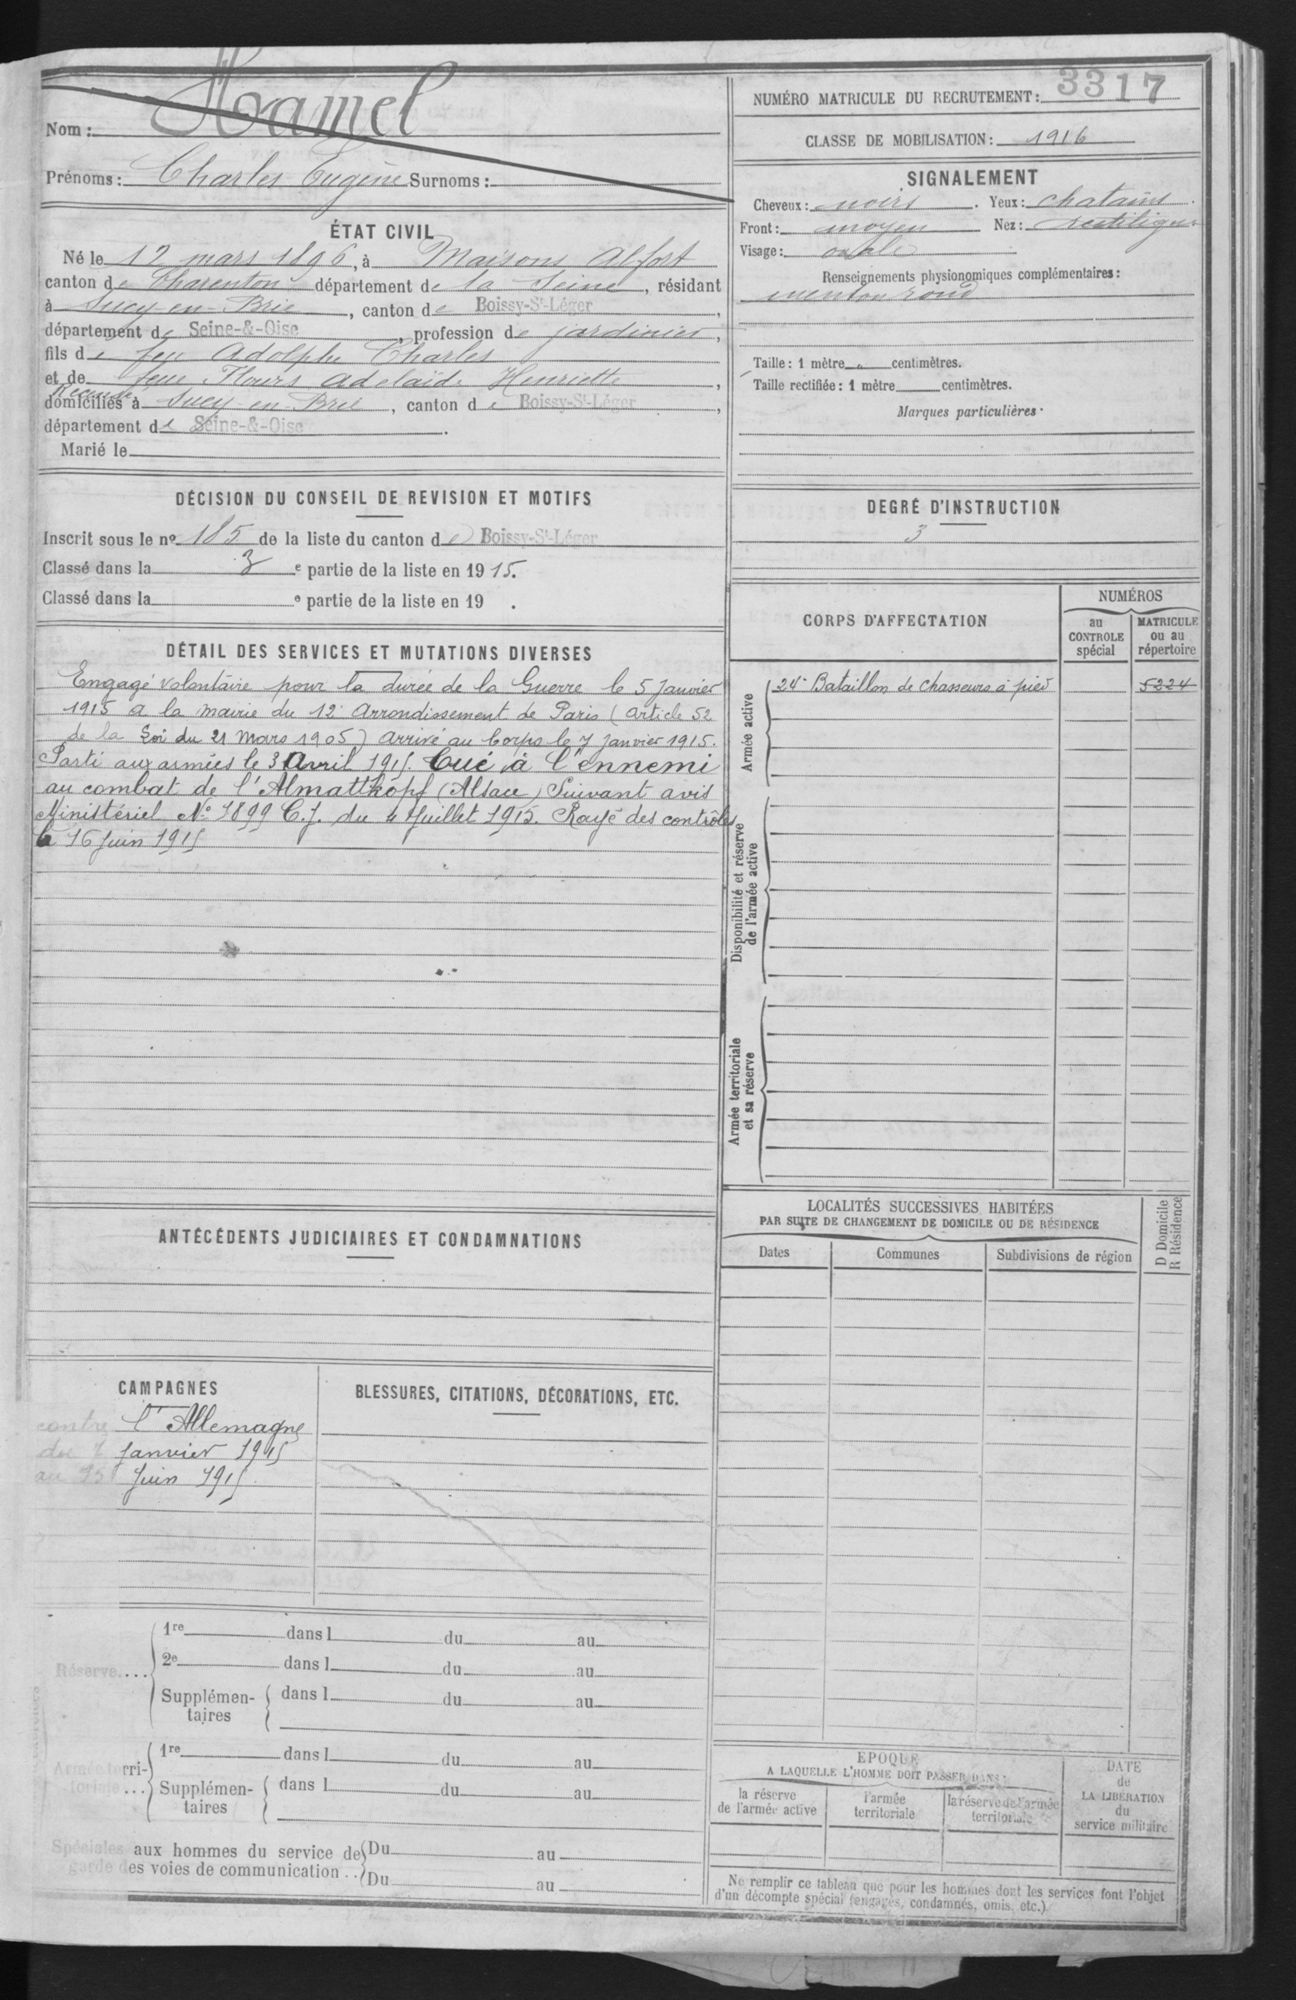 Nom : Hamel
Prénoms : Charles Eugène Surnoms :
ÉTAT CIVIL
Né le 12 mars 1896, à Maisons Alfort
canton de Charenton département de la Seine, résidant
à Sucy-en-Brie, canton de Boissy-St-Léger,
département de Seine-&-Oise, profession de jardinier,
fils de feu Adolphe Charles
et de feue Flours Adelaïde Henriette,
domiciliés à Sucy-en-Brie, canton de Boissy-St-Léger,
département de Seine-&-Oise.
Marié le
DÉCISION DU CONSEIL DE REVISION ET MOTIFS
Inscrit sous le no 185 de la liste du canton de Boissy-St-Léger
Classé dans la 3 e partie de la liste en 1915.
Classé dans la e partie de la liste en 19 .
DÉTAIL DES SERVICES ET MUTATIONS DIVERSES
Engagé volontaire pour la durée de la Guerre le 5 Janvier
1915 a la mairie du 12e Arrondissement de Paris (article 52
de la Loi du 21 Mars 1905) arrivé au Corps le 7 Janvier 1915.
Parti aux armées le 3 Avril 1915. Tué à l'ennemi
au combat de l'Almattkopf (Alsace) Suivant avis
Ministériel No 7899 C.J. du 4 Juillet 1915. Rayé des contrôles
le 16 Juin 1915
ANTÉCÉDENTS JUDICIAIRES ET CONDAMNATIONS
CAMPAGNES
contre l'Allemagne
du 7 Janvier 1915
au 15 Juin 1915.
BLESSURES, CITATIONS, DÉCORATIONS, ETC.
Réserve....
1re dans l du au
2e dans l du au
Supplémen-
taires
dans l du au
Armée terri-
toriale ...
1re dans l du au
Supplémen-
taires
dans l du au
Spéciales aux hommes du service de
garde des voies de communication ..
Du au
Du au
NUMÉRO MATRICULE DU RECRUTEMENT : 3317
CLASSE DE MOBILISATION : 1916
SIGNALEMENT
Cheveux : noirs . Yeux : chatains .
Front : moyen Nez : rectiligne
Visage : ovale
Renseignements physionomiques complémentaires :
menton rond
Taille : 1 mètre " centimètres.
Taille rectifiée : 1 mètre centimètres.
Marques particulières.
DEGRÉ D'INSTRUCTION
3
CORPS D'AFFECTATION
NUMÉROS
au
CONTROLE
spécial
MATRICULE
ou au
répertoire
Armée active
24e Bataillon de Chasseurs à pied 5224
Disponibilité et réserve
de l'armée active
Armée territoriale
et sa réserve
LOCALITÉS SUCCESSIVES HABITÉES
PAR SUITE DE CHANGEMENT DE DOMICILE OU DE RÉSIDENCE
Dates Communes Subdivisions de région
D Domicile
R Résidence
EPOQUE
A LAQUELLE L'HOMME DOIT PASSER DANS :
la réserve
de l'armée active
l'armée
territoriale
la réserve de l'armée
territoriale
DATE
de
LA LIBÉRATION
du
service militaire
Ne remplir ce tableau que pour les hommes dont les services font l'objet
d'un décompte spécial (engagés, condamnés, omis, etc.)